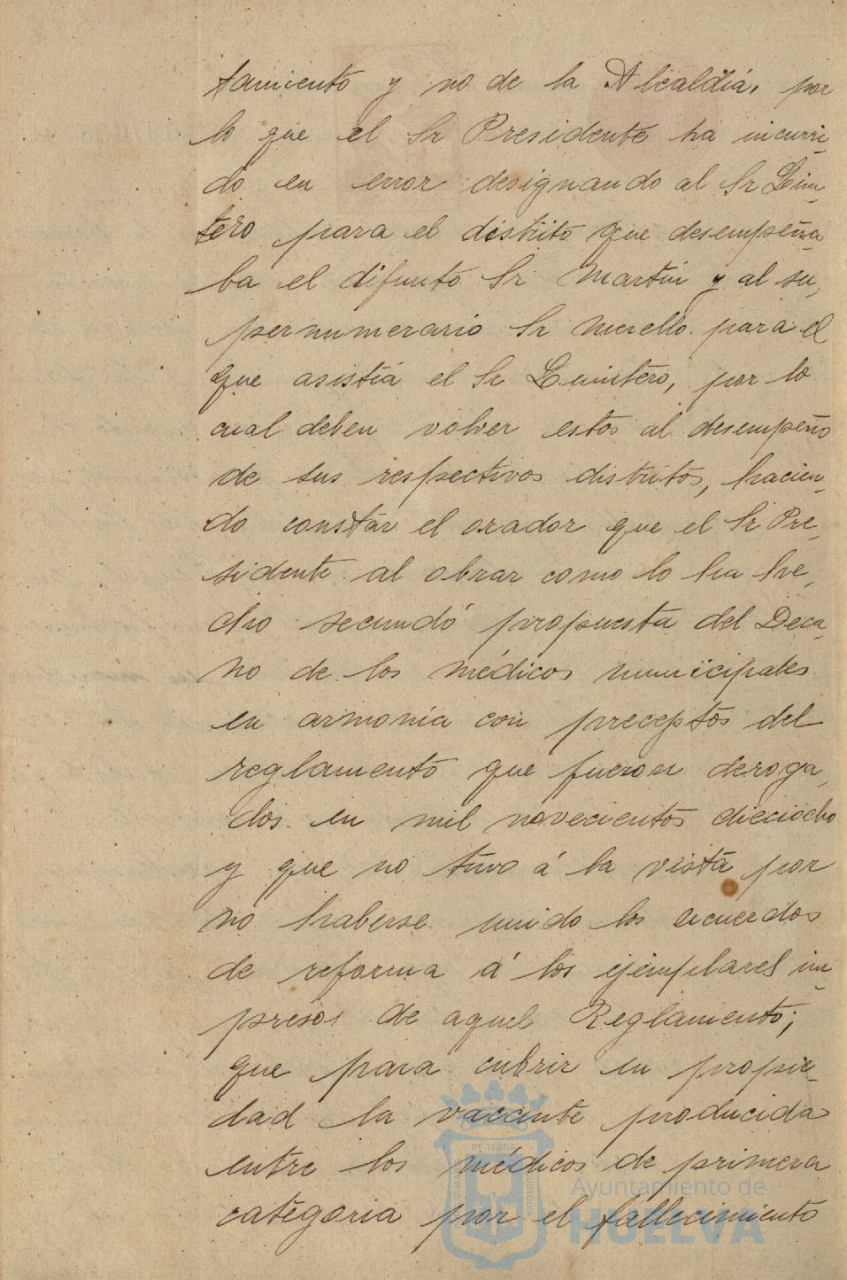 tamiento y no de la Alcaldía, por
lo que el Sr Presidente ha incurri-
do en error designando al Sr Quin-
tero para el distrito que desempeña-
ba el difunto Sr Martín y al su-
pernumerario Sr Morello para el
que asistía el Sr Quintero, por lo
cual deben volver estos al desempeño
de sus respectivos distritos, hacien-
do constar el orador que el Sr Pre-
sidente al obrar como lo ha he-
cho secundó propuesta del Deca-
no de los médicos municipales
en armonía con preceptos del
reglamento que fueron deroga-
dos en mil novecientos dieciocho
y que no tuvo á la vista por
no haberse unido los acuerdos
de reforma á los ejemplares im-
presos de aquel Reglamento;
que para cubrir en propie-
dad la vacante producida
entre los médicos de primera
categoria por el fallecimiento
Ayuntamiento de
HUELVA